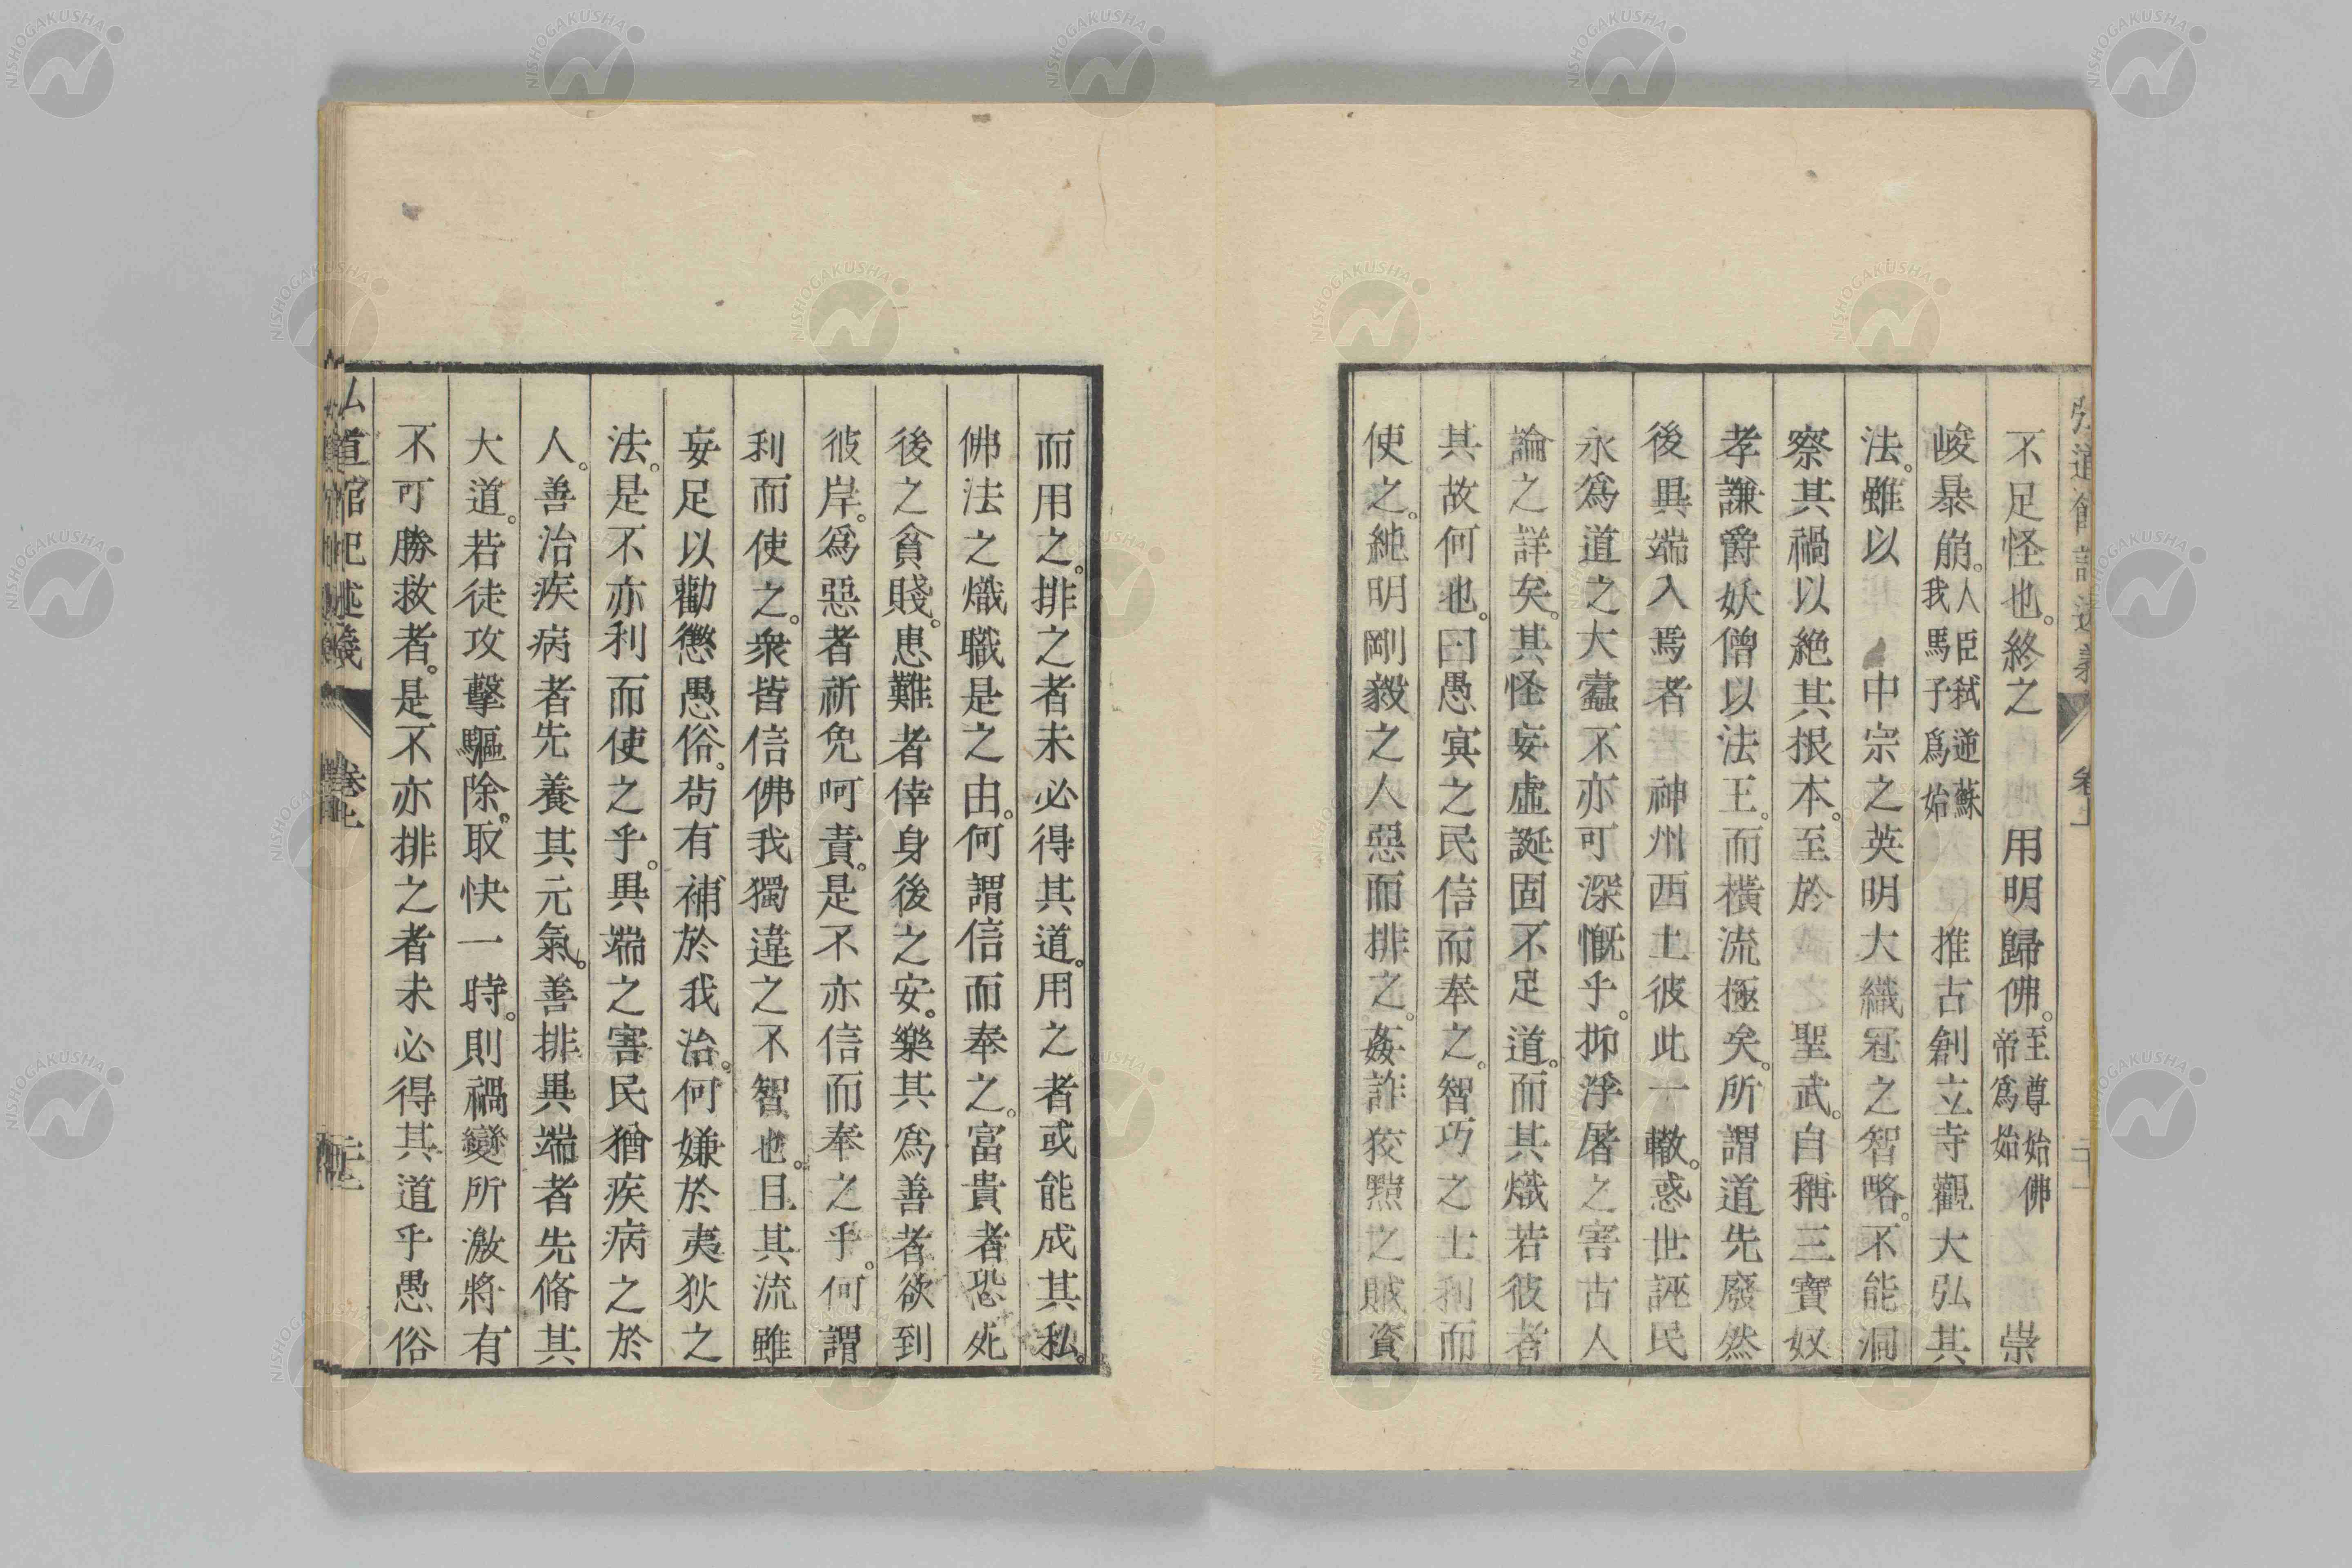 不足怪也。終之　　用明歸佛。至尊始佛帝爲始　　崇
峻暴崩。人臣弑逆蘇我馬子爲始　　推古創立寺觀大弘其
法。雖以　　中宗之英明大織冠之智略。不能洞
察其禍以絶其根本。至於　　聖武。自稱三寶奴
孝謙爵妖僧以法王。而橫流極矣。所謂道先廢然
後異端入焉者　神州西土彼此一轍。惑世誣民
永爲道之大蠹不亦可深慨乎。抑浮屠之害古人
論之詳矣。其怪妄虛誕固不足道。而其熾若彼者
其故何也。曰愚冥之民信而奉之。智巧之士利而
使之。純明剛毅之人惡而排之。姦詐狡黠之賊資
而用之。排之者未必得其道。用之者或能成其私。
佛法之熾職是之由。何謂信而奉之。富貴者恐死
後之貧賤。患難者倖身後之安。樂其爲善者欲到
彼岸。爲惡者祈免呵責。是不亦信而奉之乎。何謂
利而使之。衆皆信佛我獨違之不智也。且其流雖
妄足以勸懲愚俗。苟有補於我治。何嫌於夷狄之
法。是不亦利而使之乎。異端之害民猶疾病之於
人。善治疾病者先養其元氣。善排異端者先脩其
大道。若徒攻擊驅除。取快一時。則禍變所激將有
不可勝救者。是不亦排之者未必得其道乎愚俗
弘道館記述義　卷上